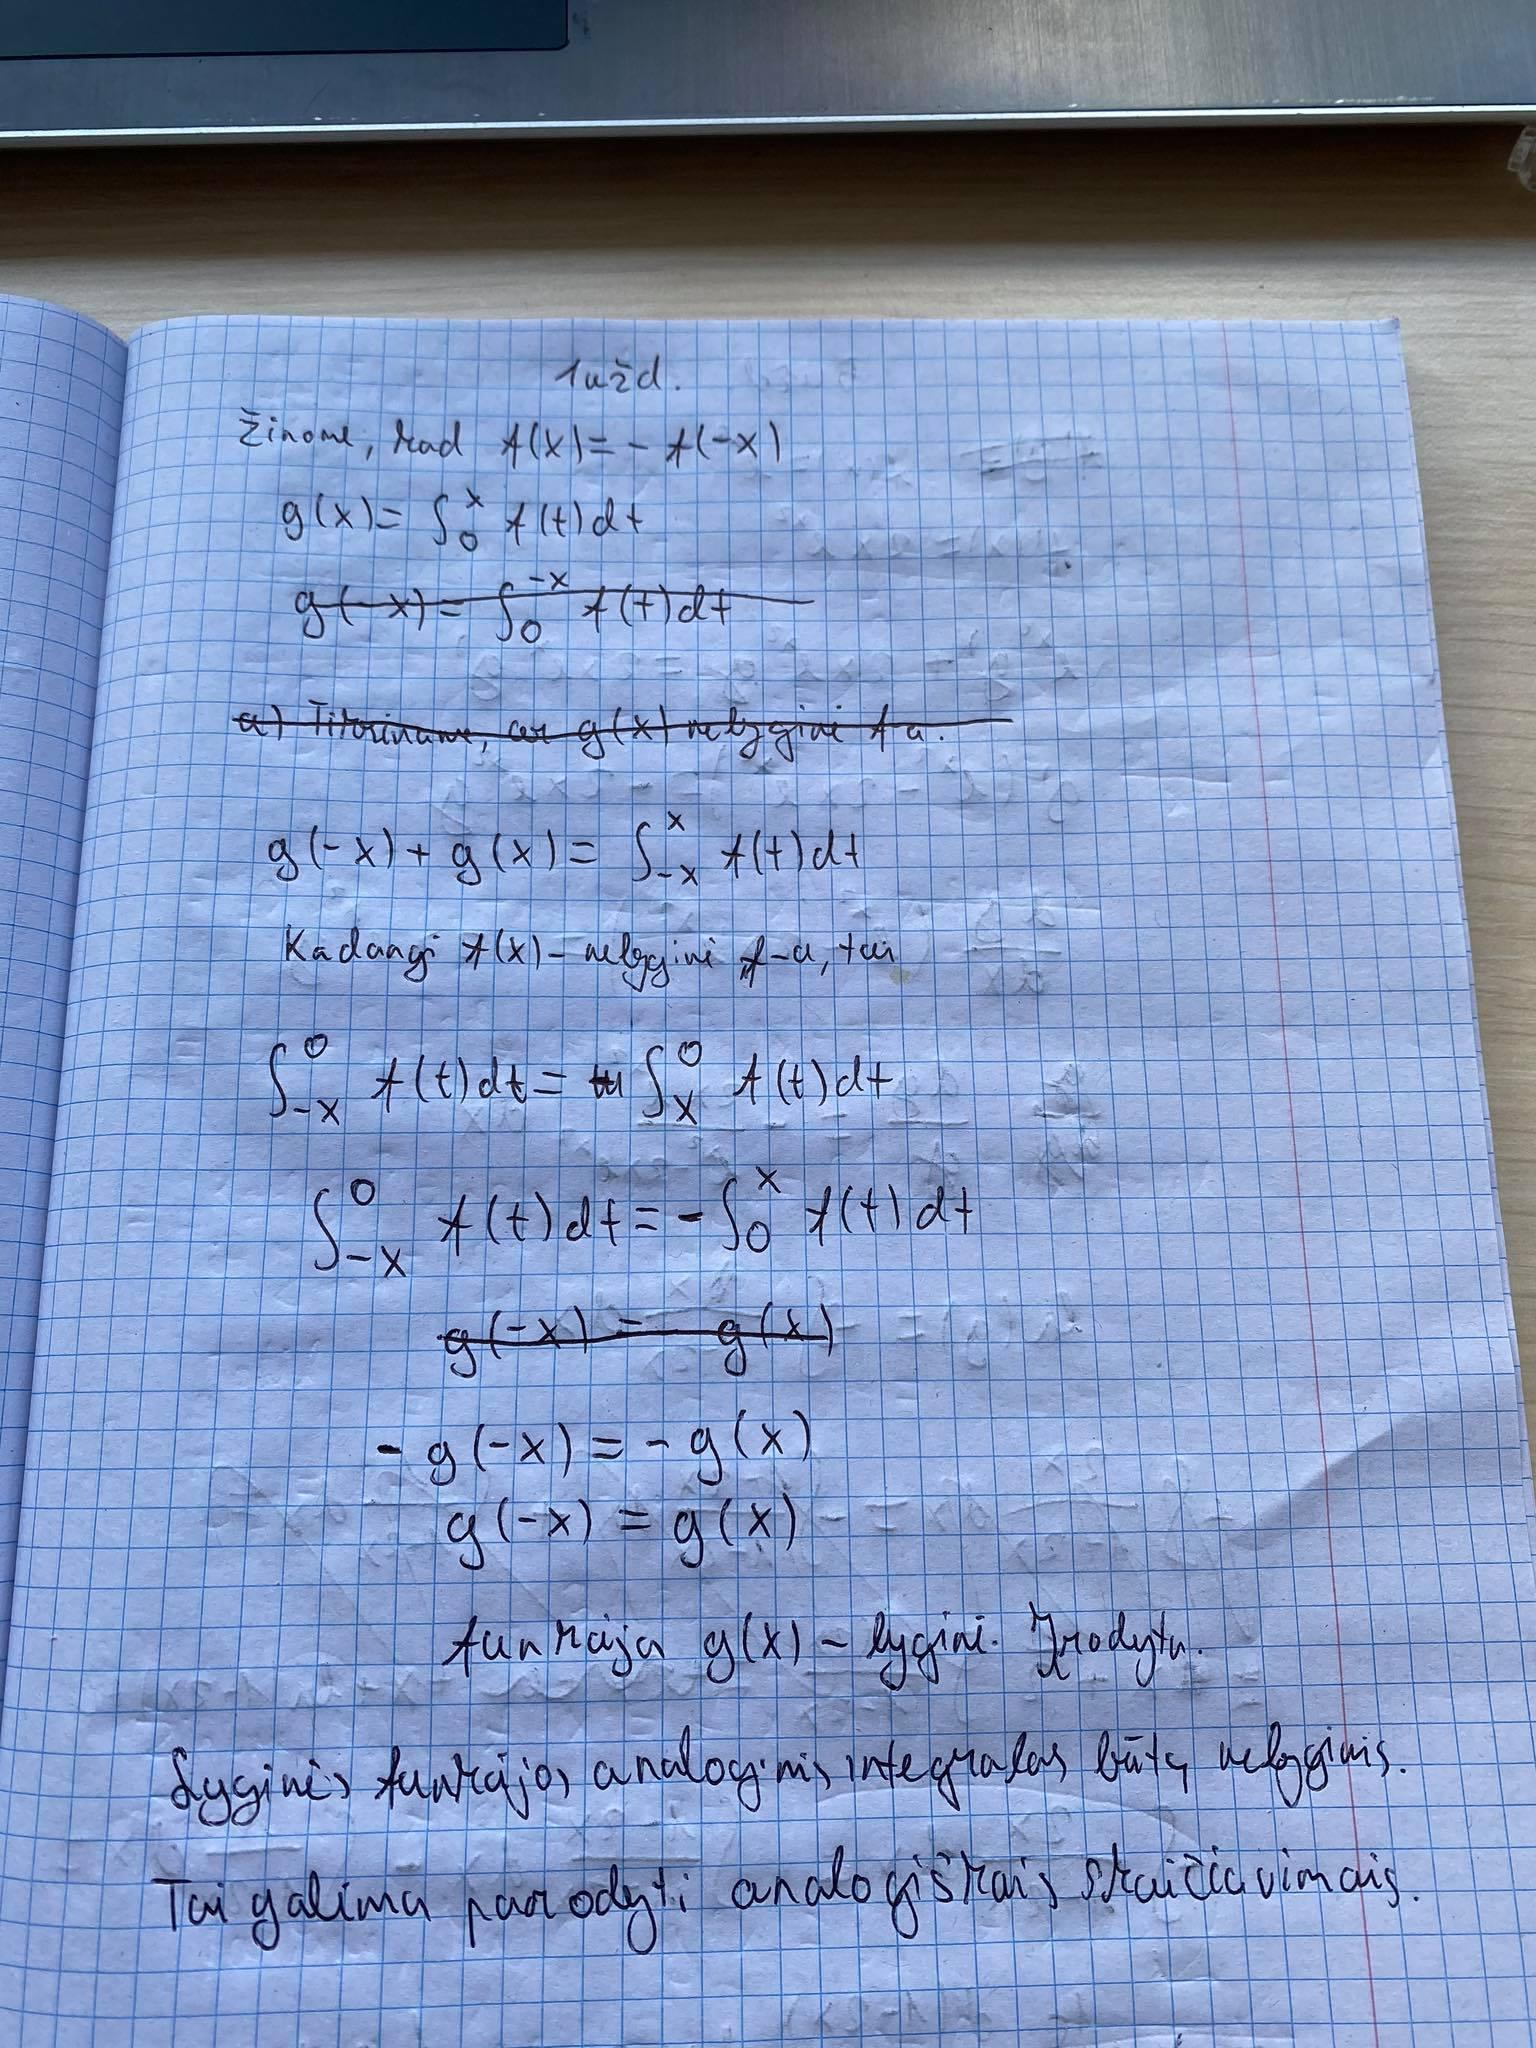 1 užd.
Žinome, kad f(x) = - f(-x)
g(x) = ∫₀ˣ f(t)dt
g(-x) = ∫₀⁻ˣ f(t)dt
a) Tikriname, ar g(x) nelyginė f-a.
g(-x) + g(x) = ∫₋ₓˣ f(t)dt
Kadangi f(x) - nelyginė f-a, tai
∫₋ₓ⁰ f(t)dt = ∫ₓ⁰ f(t)dt
∫₋ₓ⁰ f(t)dt = -∫₀ˣ f(t)dt
g(-x) = - g(x)
- g(-x) = - g(x)
g(-x) = g(x)
funkcija g(x) - lyginė. Įrodyta.
Lyginės funkcijos analoginis integralas būtų nelyginis.
Tai galima parodyti analogiškais skaičiavimais.